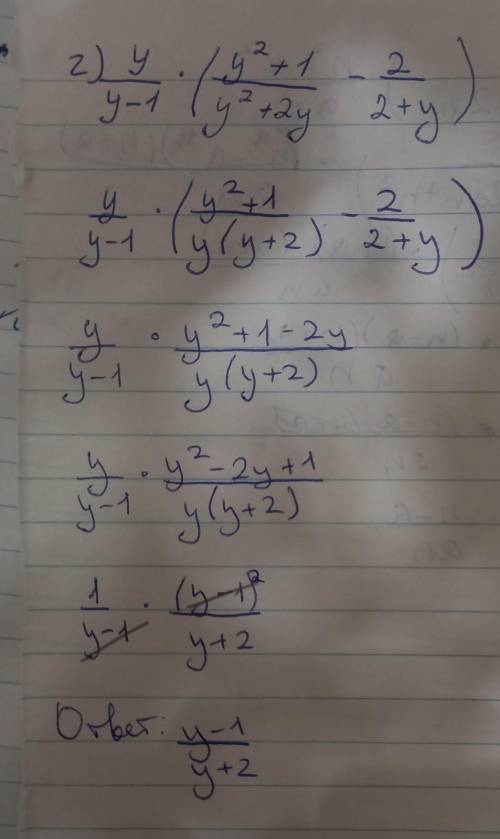 г) y/(y-1) · ((y²+1)/(y²+2y) - 2/(2+y))
y/(y-1) · ((y²+1)/(y(y+2)) - 2/(2+y))
y/(y-1) · (y²+1-2y)/(y(y+2))
y/(y-1) · (y²-2y+1)/(y(y+2))
1/(y-1) · (y-1)²/(y+2)
Ответ: (y-1)/(y+2)